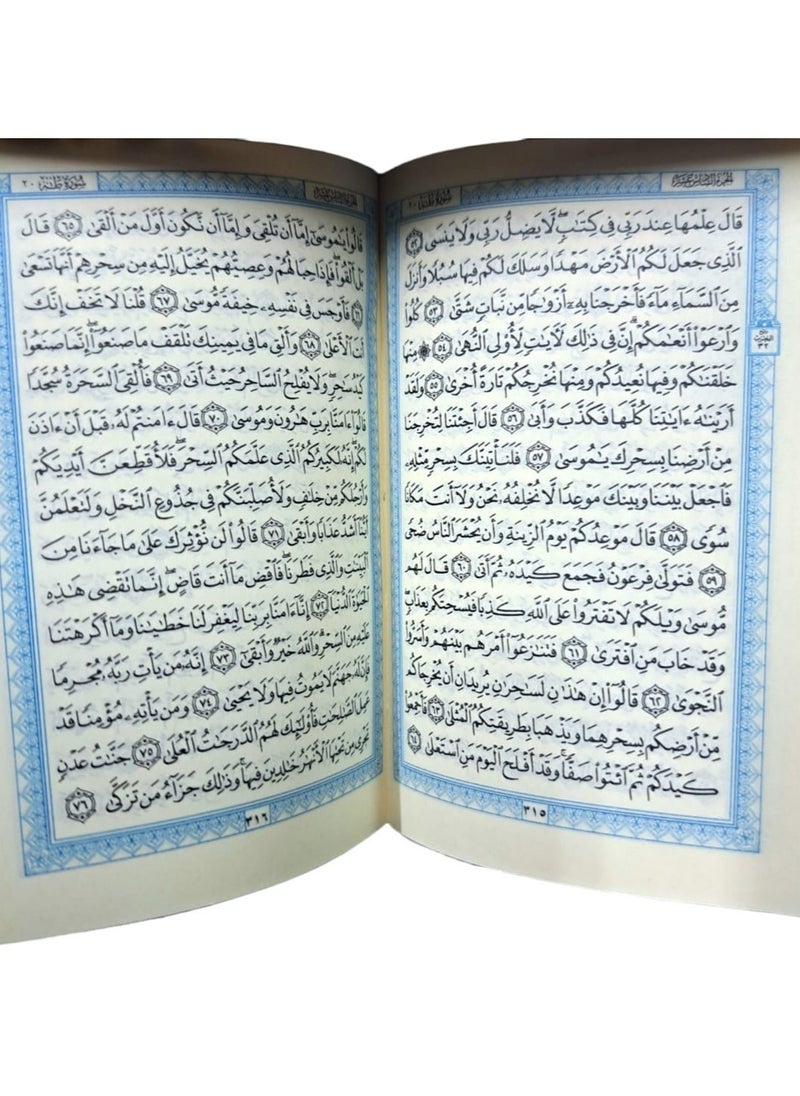 الجزء السادس عشر
سورة طه ٢٠
قَالَ عِلْمُهَا عِندَ رَبِّي فِي كِتَٰبٍۖ لَّا يَضِلُّ رَبِّي وَلَا يَنسَى ٥٢
ٱلَّذِي جَعَلَ لَكُمُ ٱلْأَرْضَ مَهْدًا وَسَلَكَ لَكُمْ فِيهَا سُبُلًا وَأَنزَلَ
مِنَ ٱلسَّمَآءِ مَآءً فَأَخْرَجْنَا بِهِۦٓ أَزْوَٰجًا مِّن نَّبَاتٍ شَتَّىٰ ٥٣ كُلُوا۟
وَٱرْعَوْا۟ أَنْعَٰمَكُمْۗ إِنَّ فِي ذَٰلِكَ لَءَايَٰتٍ لِّأُو۟لِي ٱلنُّهَىٰ ٥٤ ۞ مِنْهَا
خَلَقْنَٰكُمْ وَفِيهَا نُعِيدُكُمْ وَمِنْهَا نُخْرِجُكُمْ تَارَةً أُخْرَىٰ ٥٥ وَلَقَدْ
أَرَيْنَٰهُ ءَايَٰتِنَا كُلَّهَا فَكَذَّبَ وَأَبَىٰ ٥٦ قَالَ أَجِئْتَنَا لِتُخْرِجَنَا
مِنْ أَرْضِنَا بِسِحْرِكَ يَٰمُوسَىٰ ٥٧ فَلَنَأْتِيَنَّكَ بِسِحْرٍ مِّثْلِهِۦ
فَٱجْعَلْ بَيْنَنَا وَبَيْنَكَ مَوْعِدًا لَّا نُخْلِفُهُۥ نَحْنُ وَلَآ أَنتَ مَكَانًا
سُوًى ٥٨ قَالَ مَوْعِدُكُمْ يَوْمُ ٱلزِّينَةِ وَأَن يُحْشَرَ ٱلنَّاسُ ضُحًى
٥٩ فَتَوَلَّىٰ فِرْعَوْنُ فَجَمَعَ كَيْدَهُۥ ثُمَّ أَتَىٰ ٦٠ قَالَ لَهُم
مُّوسَىٰ وَيْلَكُمْ لَا تَفْتَرُوا۟ عَلَى ٱللَّهِ كَذِبًا فَيُسْحِتَكُم بِعَذَابٍۖ
وَقَدْ خَابَ مَنِ ٱفْتَرَىٰ ٦١ فَتَنَٰزَعُوٓا۟ أَمْرَهُم بَيْنَهُمْ وَأَسَرُّوا۟
ٱلنَّجْوَىٰ ٦٢ قَالُوٓا۟ إِنْ هَٰذَٰنِ لَسَٰحِرَٰنِ يُرِيدَانِ أَن يُخْرِجَاكُم
مِّنْ أَرْضِكُم بِسِحْرِهِمَا وَيَذْهَبَا بِطَرِيقَتِكُمُ ٱلْمُثْلَىٰ ٦٣ فَأَجْمِعُوا۟
كَيْدَكُمْ ثُمَّ ٱئْتُوا۟ صَفًّاۚ وَقَدْ أَفْلَحَ ٱلْيَوْمَ مَنِ ٱسْتَعْلَىٰ ٦٤
٣١٥
الجزء السادس عشر
سورة طه ٢٠
قَالُوا۟ يَٰمُوسَىٰٓ إِمَّآ أَن تُلْقِيَ وَإِمَّآ أَن نَّكُونَ أَوَّلَ مَنْ أَلْقَىٰ ٦٥ قَالَ
بَلْ أَلْقُوا۟ۖ فَإِذَا حِبَالُهُمْ وَعِصِيُّهُمْ يُخَيَّلُ إِلَيْهِ مِن سِحْرِهِمْ أَنَّهَا تَسْعَىٰ
٦٦ فَأَوْجَسَ فِي نَفْسِهِۦ خِيفَةً مُّوسَىٰ ٦٧ قُلْنَا لَا تَخَفْ إِنَّكَ
أَنتَ ٱلْأَعْلَىٰ ٦٨ وَأَلْقِ مَا فِي يَمِينِكَ تَلْقَفْ مَا صَنَعُوٓا۟ۖ إِنَّمَا صَنَعُوا۟
كَيْدُ سَٰحِرٍۖ وَلَا يُفْلِحُ ٱلسَّاحِرُ حَيْثُ أَتَىٰ ٦٩ فَأُلْقِيَ ٱلسَّحَرَةُ سُجَّدًا
قَالُوٓا۟ ءَامَنَّا بِرَبِّ هَٰرُونَ وَمُوسَىٰ ٧٠ قَالَ ءَامَنتُمْ لَهُۥ قَبْلَ أَنْ ءَاذَنَ
لَكُمْۖ إِنَّهُۥ لَكَبِيرُكُمُ ٱلَّذِي عَلَّمَكُمُ ٱلسِّحْرَۖ فَلَأُقَطِّعَنَّ أَيْدِيَكُمْ
وَأَرْجُلَكُم مِّنْ خِلَٰفٍ وَلَأُصَلِّبَنَّكُمْ فِي جُذُوعِ ٱلنَّخْلِ وَلَتَعْلَمُنَّ
أَيُّنَآ أَشَدُّ عَذَابًا وَأَبْقَىٰ ٧١ قَالُوا۟ لَن نُّؤْثِرَكَ عَلَىٰ مَا جَآءَنَا مِنَ
ٱلْبَيِّنَٰتِ وَٱلَّذِي فَطَرَنَاۖ فَٱقْضِ مَآ أَنتَ قَاضٍۖ إِنَّمَا تَقْضِي هَٰذِهِ
ٱلْحَيَوٰةَ ٱلدُّنْيَآ ٧٢ إِنَّآ ءَامَنَّا بِرَبِّنَا لِيَغْفِرَ لَنَا خَطَٰيَٰنَا وَمَآ أَكْرَهْتَنَا
عَلَيْهِ مِنَ ٱلسِّحْرِۗ وَٱللَّهُ خَيْرٌ وَأَبْقَىٰٓ ٧٣ إِنَّهُۥ مَن يَأْتِ رَبَّهُۥ مُجْرِمًا
فَإِنَّ لَهُۥ جَهَنَّمَ لَا يَمُوتُ فِيهَا وَلَا يَحْيَىٰ ٧٤ وَمَن يَأْتِهِۦ مُؤْمِنًا قَدْ
عَمِلَ ٱلصَّٰلِحَٰتِ فَأُو۟لَٰٓئِكَ لَهُمُ ٱلدَّرَجَٰتُ ٱلْعُلَىٰ ٧٥ جَنَّٰتُ عَدْنٍ
تَجْرِي مِن تَحْتِهَا ٱلْأَنْهَٰرُ خَٰلِدِينَ فِيهَاۚ وَذَٰلِكَ جَزَآءُ مَن تَزَكَّىٰ ٧٦
٣١٦